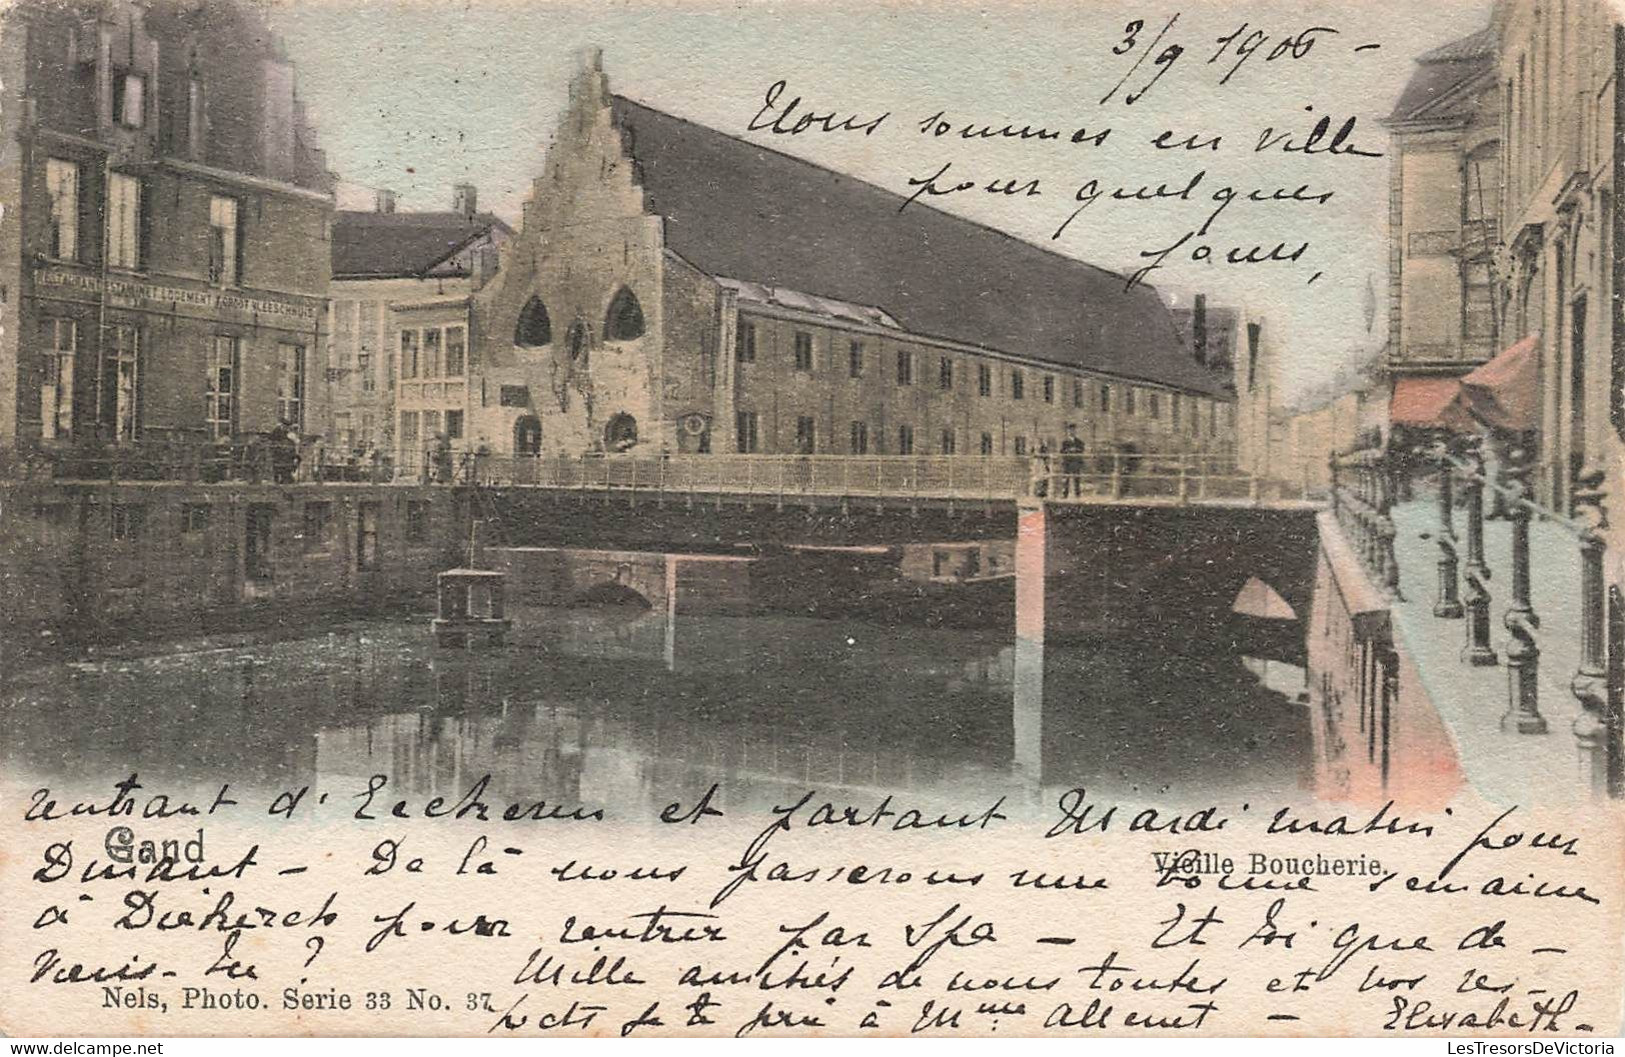 3/9 1906 -
Nous sommes en ville
pour quelques
jours,
RESTAURANT ESTAMINET LOGEMENT GROOT VLEESCHHUIS
rentrant d'Eeckeren et partant Mardi matin pour
Gand
Vieille Boucherie.
Dinant - De là nous passerons une bonne semaine
à Diekirch pour rentrer par Spa - Et toi que de-
viens-tu ? Mille amitiés de nous toutes et nos res-
Nels, Photo. Serie 33 No. 37
pects je te prie à Mme Allenet - Elisabeth-
LesTresorsDeVictoria